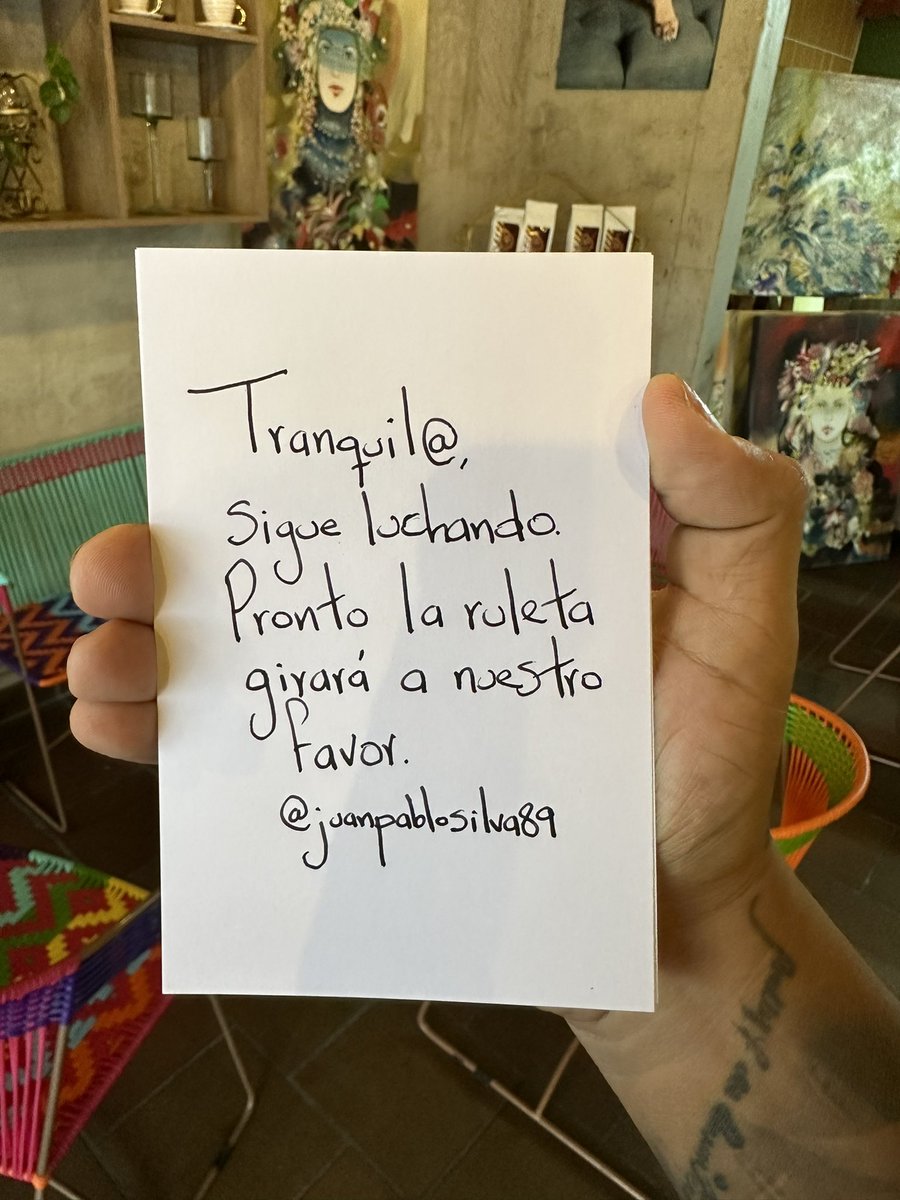 Tranquil@,
Sigue luchando.
Pronto la ruleta
girará a nuestro
favor.
@juanpablosilva89